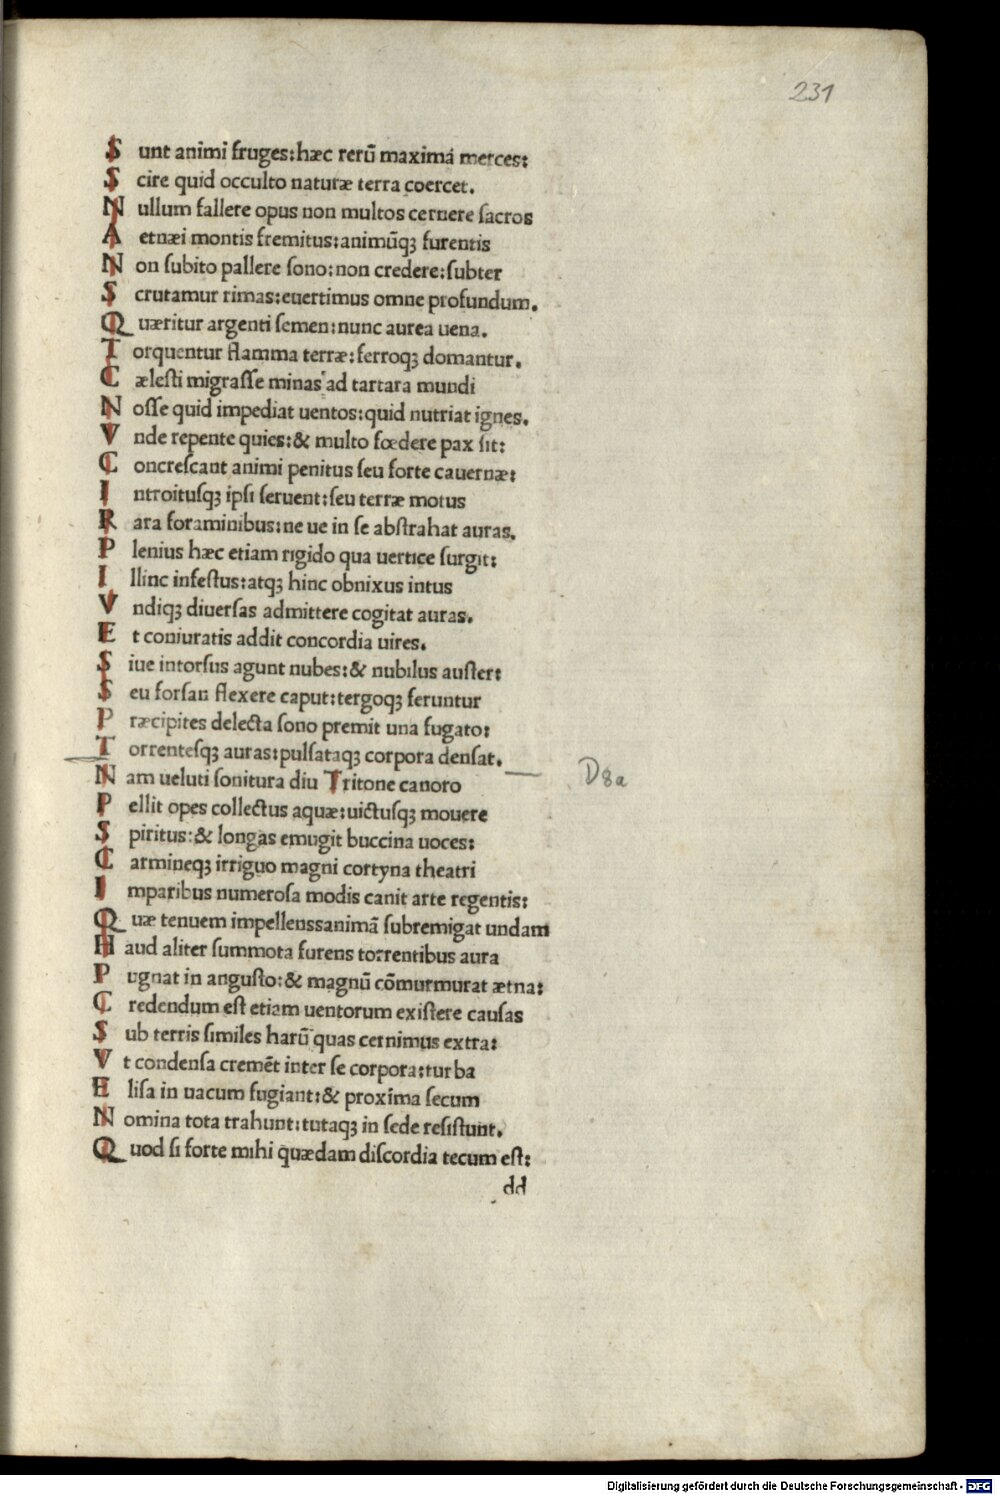 231
Sunt animi fruges: hæc rerũ maxima merces:
Scire quid occulto naturæ terra coercet.
Nullum fallere opus non multos cernere sacros
Aetnæi montis fremitus: animũqꝫ furentis
Non subito pallere sono: non credere: subter
Scrutamur rimas: euertimus omne profundum.
Quæritur argenti semen: nunc aurea uena.
Torquentur flamma terræ: ferroqꝫ domantur.
Cælesti migrasse minas ad tartara mundi
Nosse quid impediat uentos: quid nutriat ignes.
Vnde repente quies: & multo fœdere pax sit:
Concrescant animi penitus seu forte cauernæ:
Introitusqꝫ ipsi seruent: seu terræ motus
Rara foraminibus: ne ue in se abstrahat auras.
Plenius hæc etiam rigido qua uertice surgit:
Illinc infestus: atqꝫ hinc obnixus intus
Vndiqꝫ diuersas admittere cogitat auras.
Et coniuratis addit concordia uires.
Siue intorsus agunt nubes: & nubilus auster:
Seu forsan flexere caput: tergoqꝫ feruntur
Præcipites delecta sono premit una fugato:
Torrentesqꝫ auras: pulsataqꝫ corpora densat.
Nam ueluti sonitura diu Tritone canoro
D8a
Pellit opes collectus aquæ: uictusqꝫ mouere
Spiritus: & longas emugit buccina uoces:
Carmineqꝫ irriguo magni cortyna theatri
Imparibus numerosa modis canit arte regentis:
Quæ tenuem impellenssanimã subremigat undam
Haud aliter summota furens torrentibus aura
Pugnat in angusto: & magnũ cõmurmurat ætna:
Credendum est etiam uentorum existere causas
Sub terris similes harũ quas cernimus extra:
Vt condensa cremẽt inter se corpora: turba
Elisa in uacum fugiant: & proxima secum
Nomina tota trahunt: tutaqꝫ in sede resistunt.
Quod si forte mihi quædam discordia tecum est:
dd
Digitalisierung gefördert durch die Deutsche Forschungsgemeinschaft - DFG